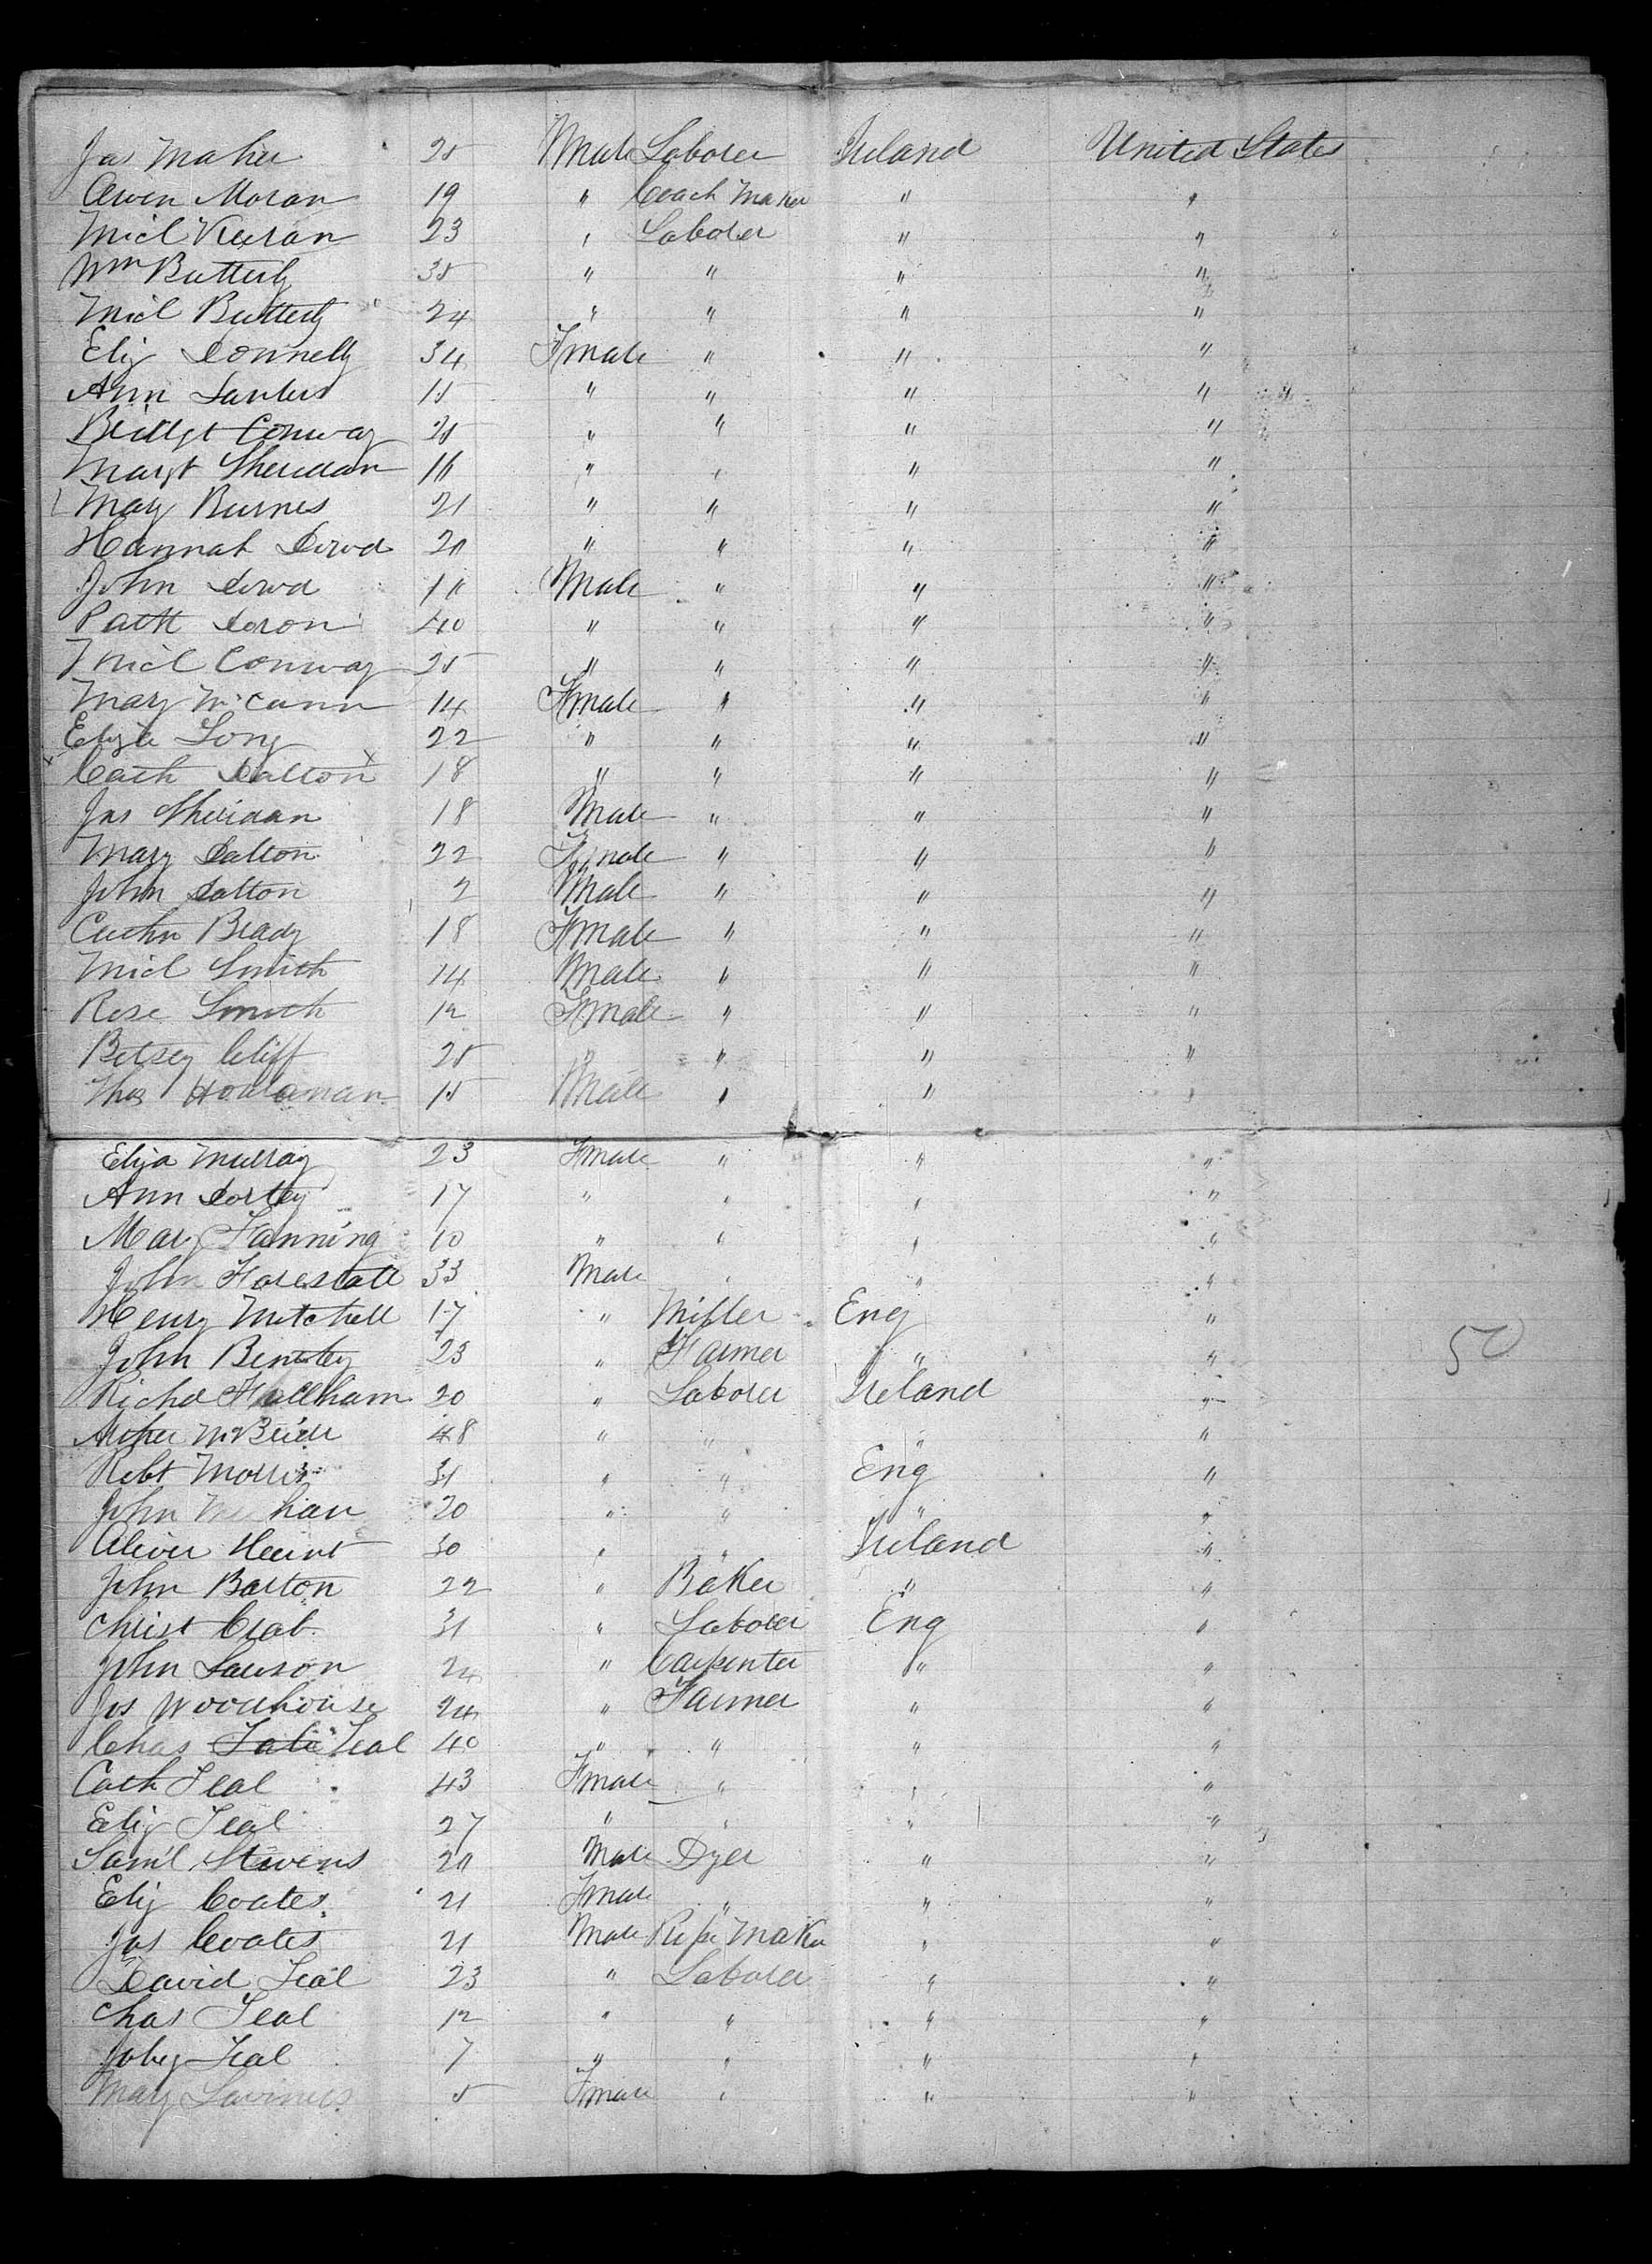 Jas Maher 25 Male Laborer Ireland United States
Owen Moran 19 " Coach Maker " "
Micl Kieran 23 " Laborer " "
Wm Butterly 35 " " " "
Micl Butterly 24 " " " "
Eliz Donnelly 34 Fmale " " "
Ann 15 " " " "
Bridgt Conway 25 " " " "
Margt Sheridan 16 " " " "
Mary Burnes 21 " " " "
Hannah Dowd 20 " " " "
John Dowd Male " " "
Patk Doron 40 " " " "
Micl Conway 25 " " " "
Mary McCann 14 Fmale " " "
Eliza Long 22 " " " "
x Cath Dalton x 18 " " " "
Jas Sheridan 18 Male " " "
Mary Dalton 22 Fmale " " "
John Dalton 2 Male " " "
Cathn Brady 18 Fmale " " "
Micl Smith 14 Male " " "
Rose Smith 12 Fmale " " "
Betsey Cliff 25 " " " "
Thos 15 Male " " "
Eliza Murray 23 Fmale " " "
Ann Dortey 17 " " " "
Mary Fanning 10 " " " "
John Forestall 33 Male " " "
Henry Mitchell 17 " Miller Eng "
John Bentley 23 " Farmer " "
Richd Fullham 20 " Laborer Ireland "
McBride 48 " " " "
Robt Morris 31 " " Eng "
John 20 " " " "
Oliver Hunt 30 " " Ireland "
John Barton 22 " Baker " "
Christ Crab 31 " Laborer Eng "
John Lawson 24 " Carpenter " "
Jos Woodhouse 24 " Farmer " "
Chas Teal 40 " " " "
Cath Teal 43 Fmale " " "
Eliz Teal 27 " " " "
Saml Stevens 20 Male Dyer " "
Eliz Coates 21 Fmale " " "
Jas Coates 21 Male Rope Maker " "
David Teal 23 " Laborer " "
Chas Teal 12 " " " "
Teal 7 " " " "
Mary 5 Fmale " " "
50